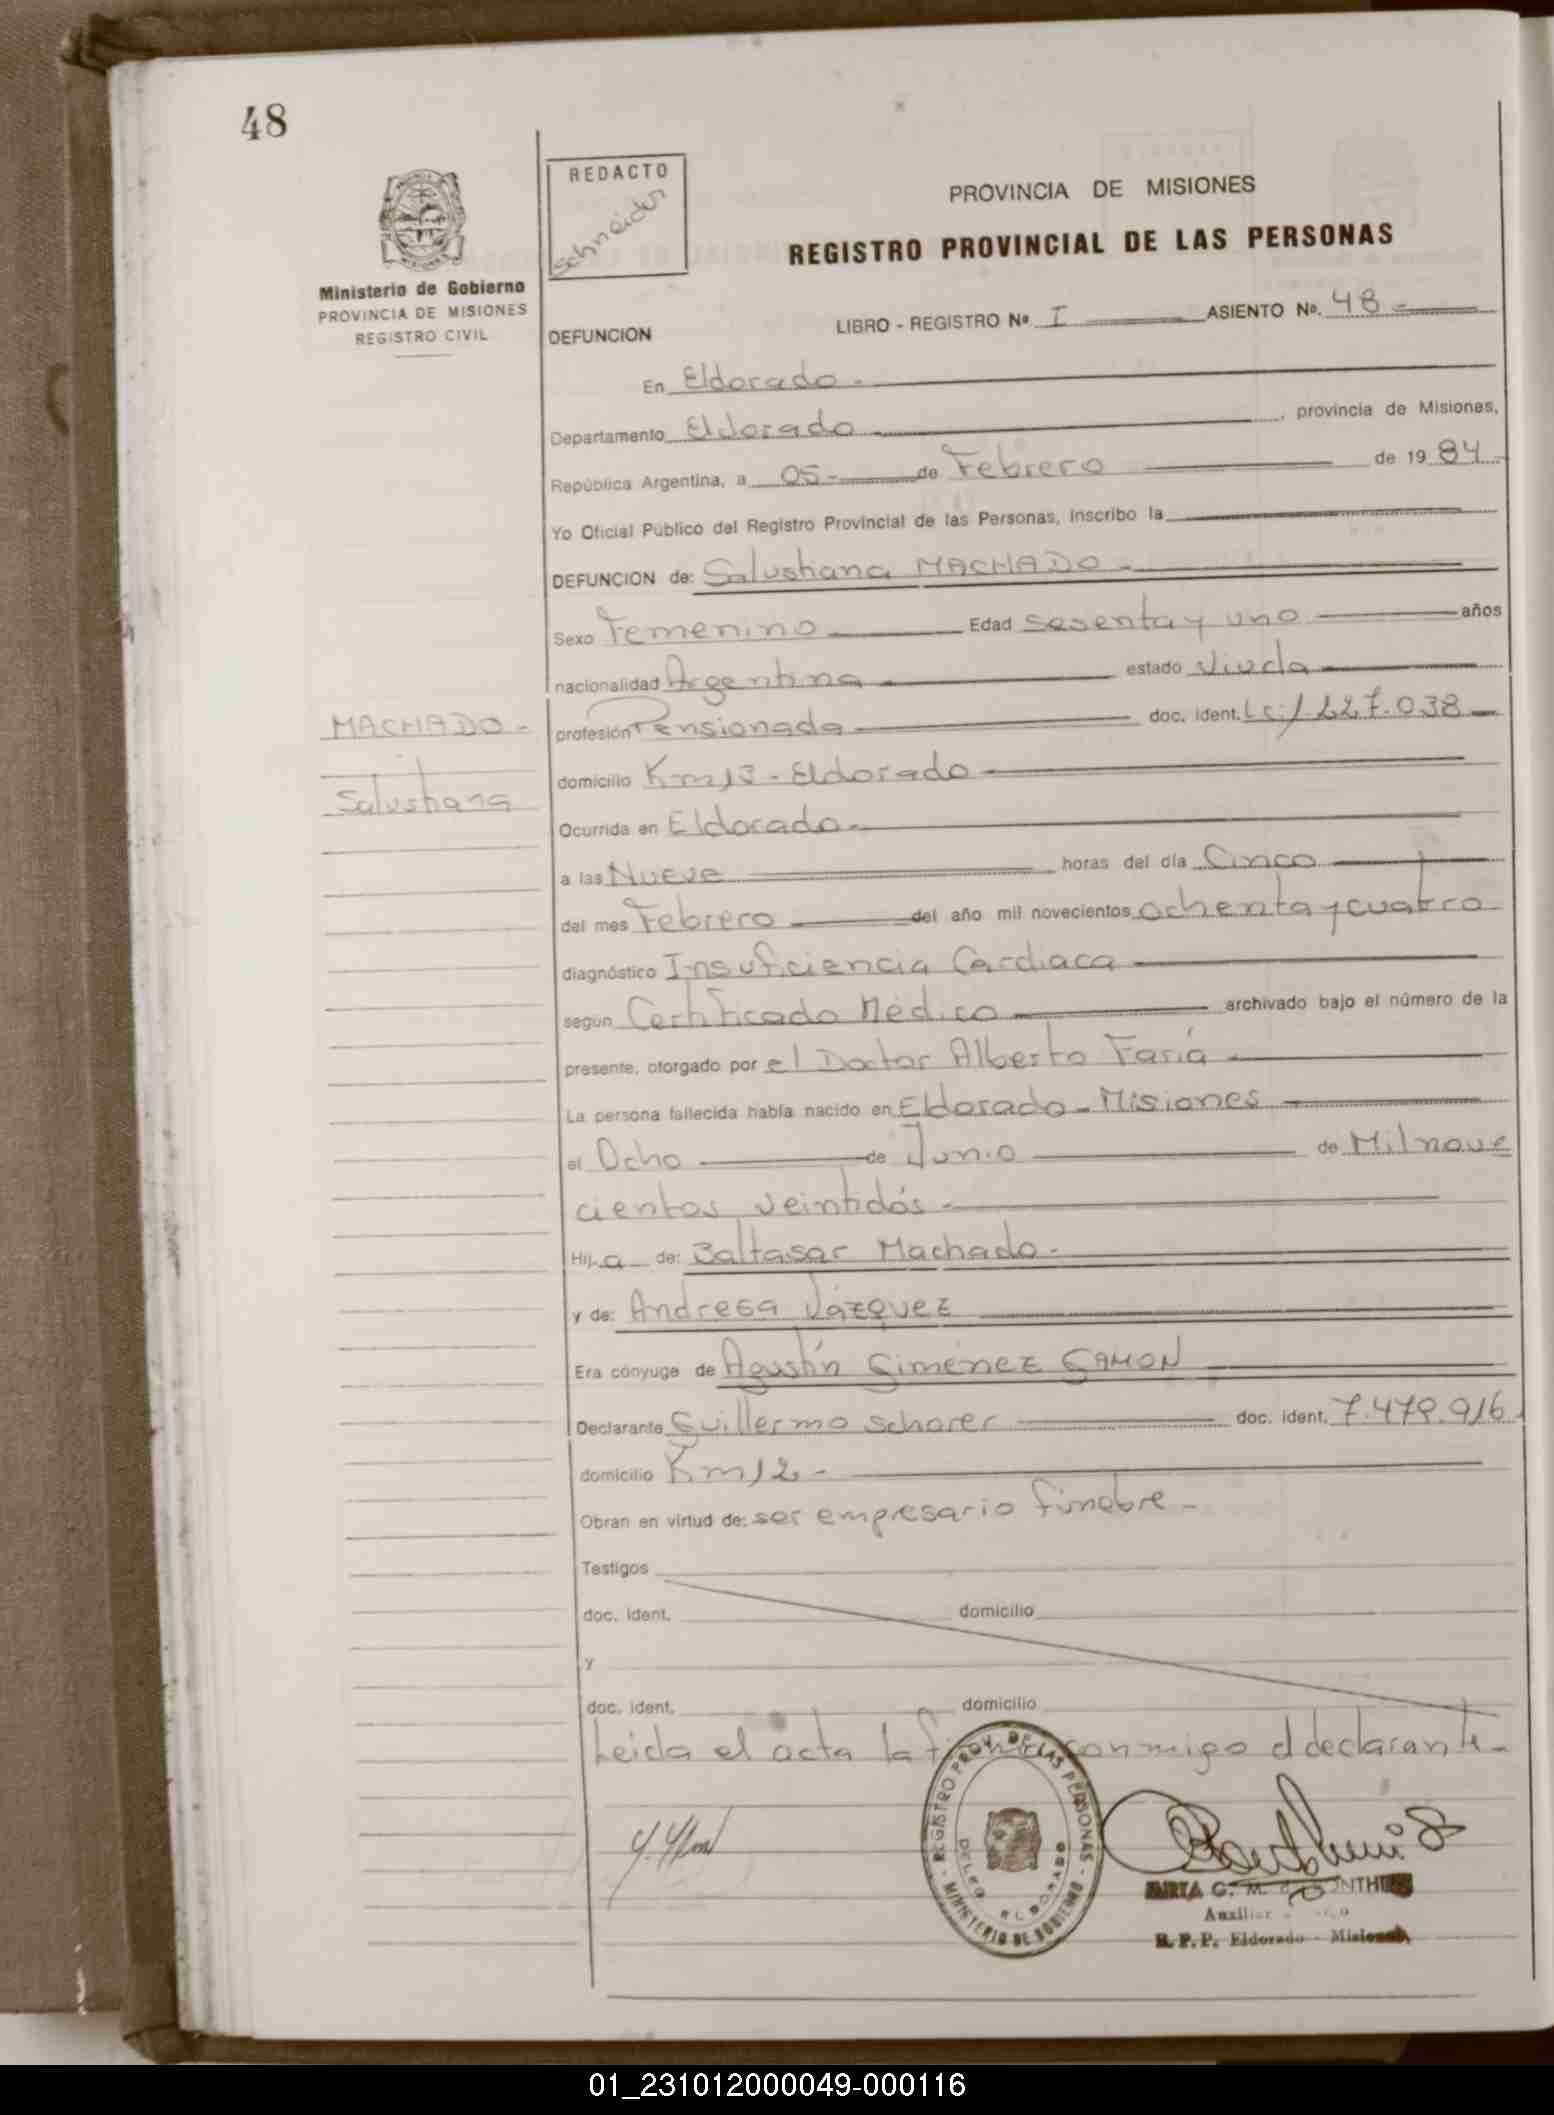 48
REDACTO
Schneider
PROVINCIA DE MISIONES
REGISTRO PROVINCIAL DE LAS PERSONAS
Ministerio de Gobierno
PROVINCIA DE MISIONES
REGISTRO CIVIL
DEFUNCION
LIBRO - REGISTRO Nº I ASIENTO Nº. 48 -
En Eldorado -
Departamento Eldorado , provincia de Misiones,
República Argentina, a 05 - de Febrero de 19 84
Yo Oficial Público del Registro Provincial de las Personas, inscribo la
DEFUNCION de: Salustiana MACHADO -
Sexo Femenino Edad sesenta y uno años
nacionalidad Argentina estado Viuda
MACHADO -
Salustiana
profesión Pensionada doc. ident. Lc./ 227.038
domicilio Km 13 - Eldorado
Ocurrida en Eldorado -
a las Nueve horas del día Cinco
del mes Febrero del año mil novecientos ochenta y cuatro
diagnóstico Insuficiencia Cardiaca
según Certificado Médico archivado bajo el número de la
presente, otorgado por el Doctor Alberto Faria
La persona fallecida había nacido en Eldorado - Misiones
el Ocho de Junio de Milnove
cientos veintidós -
Hij a de: Baltasar Machado -
y de: Andresa Vázquez
Era cónyuge de Agustín Gimenez GAMON
Declarante Guillermo Scharer doc. ident. 7.479.916
domicilio Km 12 -
Obran en virtud de: ser empresario fúnebre -
Testigos
doc. ident. domicilio
y
doc. ident. domicilio
Leida el acta la firma conmigo el declarante -
REGISTRO PROV. DE LAS PERSONAS
DELEG. ELDORADO
MINISTERIO DE GOBIERNO
G. M.
Auxiliar
R. P. P. Eldorado - Misiones
01_231012000049-000116